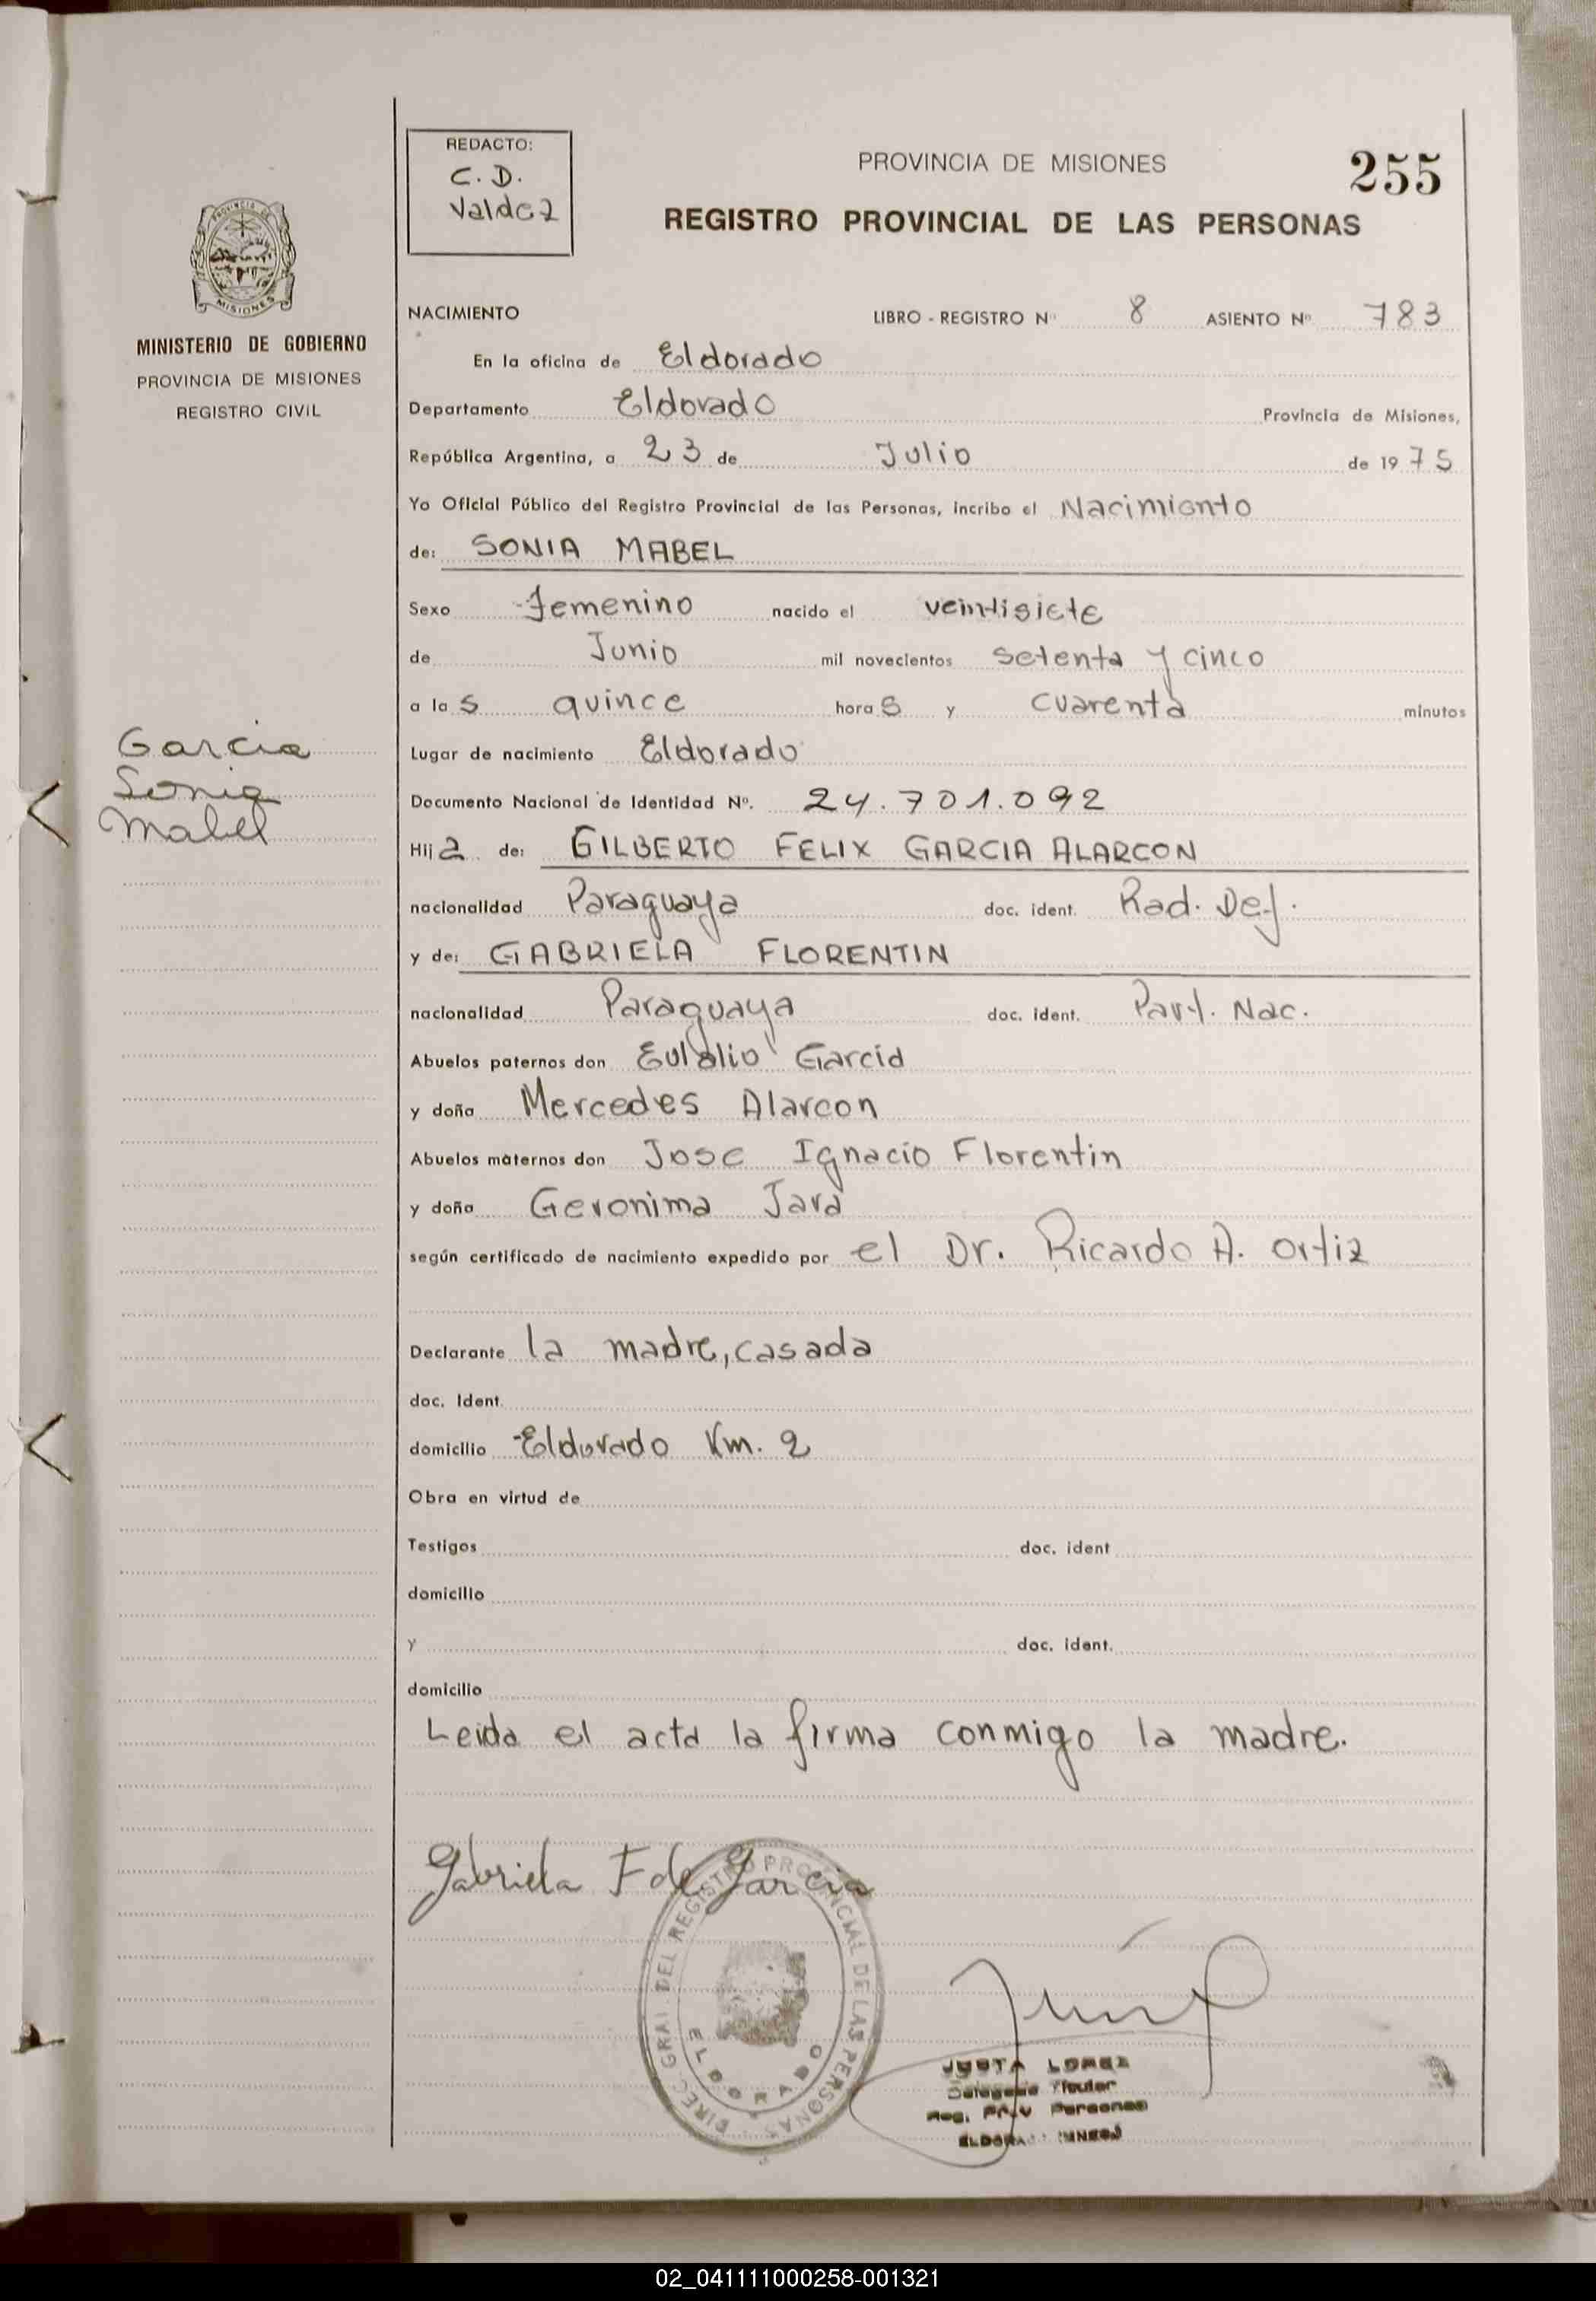 REDACTO:
C. D.
Valdez
PROVINCIA DE MISIONES
255
REGISTRO PROVINCIAL DE LAS PERSONAS
PROVINCIA DE
MISIONES
MINISTERIO DE GOBIERNO
PROVINCIA DE MISIONES
REGISTRO CIVIL
NACIMIENTO LIBRO - REGISTRO Nº 8 ASIENTO Nº 783
En la oficina de Eldorado
Departamento Eldorado Provincia de Misiones,
República Argentina, a 23 de Julio de 1975
Yo Oficial Público del Registro Provincial de las Personas, incribo el Nacimiento
de: SONIA MABEL
Sexo Femenino nacido el veintisiete
de Junio mil novecientos setenta y cinco
a las quince horas y cuarenta minutos
Garcia
Sonia
Mabel
Lugar de nacimiento Eldorado
Documento Nacional de Identidad Nº. 24.701.092
Hija de: GILBERTO FELIX GARCIA ALARCON
nacionalidad Paraguaya doc. ident. Rad. Def.
y de: GABRIELA FLORENTIN
nacionalidad Paraguaya doc. ident. Part. Nac.
Abuelos paternos don Eulalio Garcia
y doña Mercedes Alarcon
Abuelos maternos don Jose Ignacio Florentin
y doña Geronima Jara
según certificado de nacimiento expedido por el Dr. Ricardo A. Ortiz
Declarante la madre, casada
doc. Ident.
domicilio Eldorado Km. 2
Obra en virtud de
Testigos doc. ident
domicilio
y doc. ident.
domicilio
Leida el acta la firma conmigo la madre.
Gabriela F de Garcia
DIREC. GRAL. DEL REGISTRO PROVINCIAL DE LAS PERSONAS
ELDORADO
JUSTA LOPEZ
Delegada Titular
Reg. Prov Personas
02_041111000258-001321